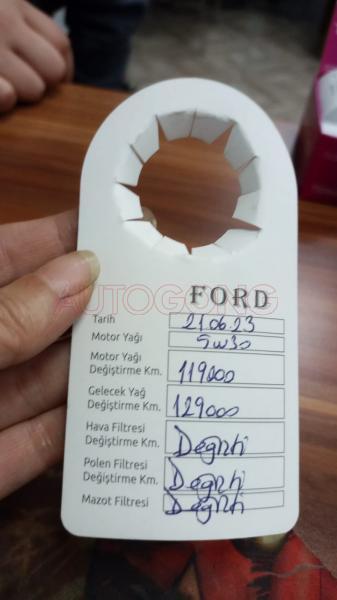 AUTOGONG
FORD
Tarih 21.06.23
Motor Yağı 5w30
Motor Yağı
Değiştirme Km. 119000
Gelecek Yağ
Değiştirme Km. 129000
Hava Filtresi
Değiştirme Km. Değişti
Polen Filtresi
Değiştirme Km. Değişti
Mazot Filtresi Değişti